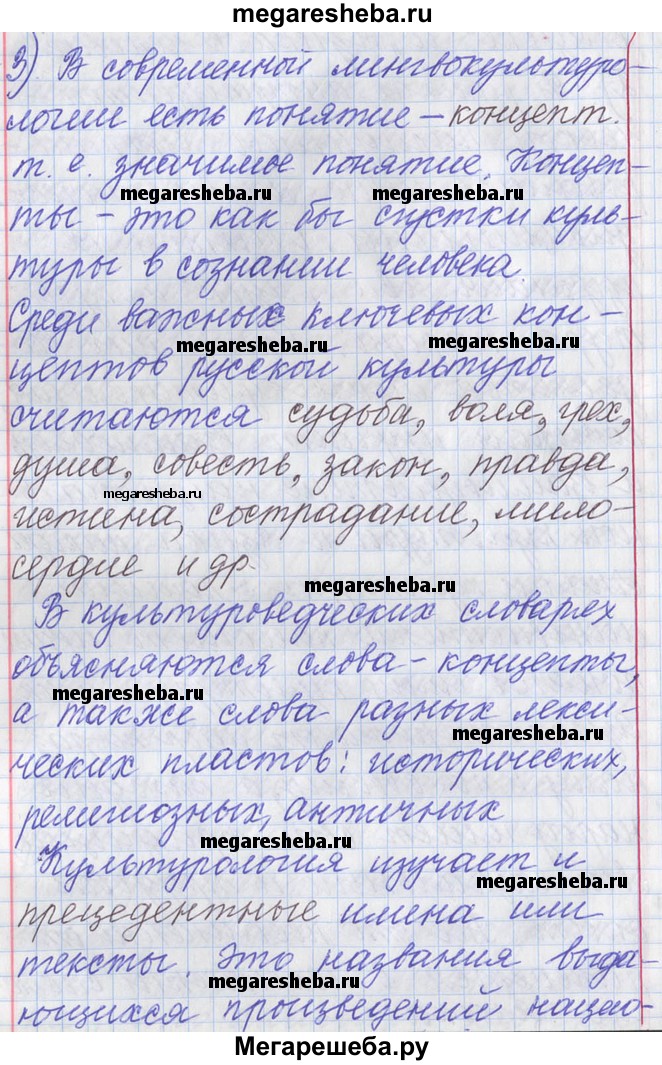 megaresheba.ru
3) В современной лингвокультуро-
логии есть понятие – концепт.
т. е. значимое понятие. Концеп-
megaresheba.ru megaresheba.ru
ты – это как бы сгустки куль-
туры в сознании человека.
Среди важных ключевых кон-
megaresheba.ru megaresheba.ru
цептов русской культуры
считаются судьба, воля, грех,
душа, совесть, закон, правда,
megaresheba.ru
истина, сострадание, мило-
сердие и др.
megaresheba.ru
В культуроведческих словарех
объясняются слова – концепты,
megaresheba.ru
а также слова разных лекси-
megaresheba.ru
ческих пластов: исторических,
религиозных, античных
megaresheba.ru
Культурология изучает и
megaresheba.ru
прецедентные имена или
тексты. Это названия выда-
megaresheba.ru
ющихся произведений нацио-
Мегарешеба.ру